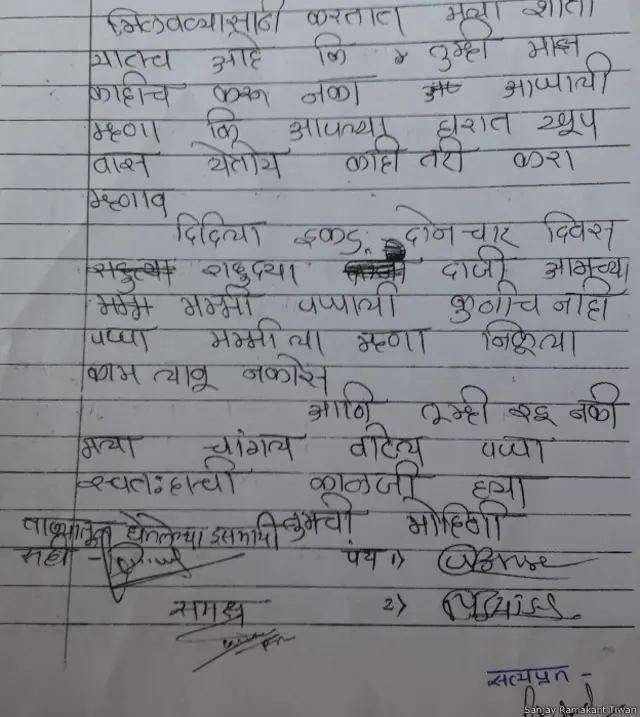 मिळवल्यासान करतात मला शाता
यातच आहे कि तुम्ही माझ
काहीच करू नका आप्पाली
म्हणा कि आपल्या घरात खूप
वास येतोय काही तरी करा
म्हणाव
दिदिला इकडं दोन चार दिवस
राहुद्या दाजी आमच्या
मम्मी पप्पाली कुणीच नाही
पप्पा मम्मीला म्हणा निळूला
काम लावू नकोस
आणि तूम्ही रडू नका
मला चांगल वाटल पप्पा
स्वतःहाची काळजी घ्या
तुमची मोहिनी
ताब्यातून घेतलेल्या इसमाची
सही -
पंच 1)
समक्ष 2)
सत्यप्रत -
Sanjay Ramakant Tiwari